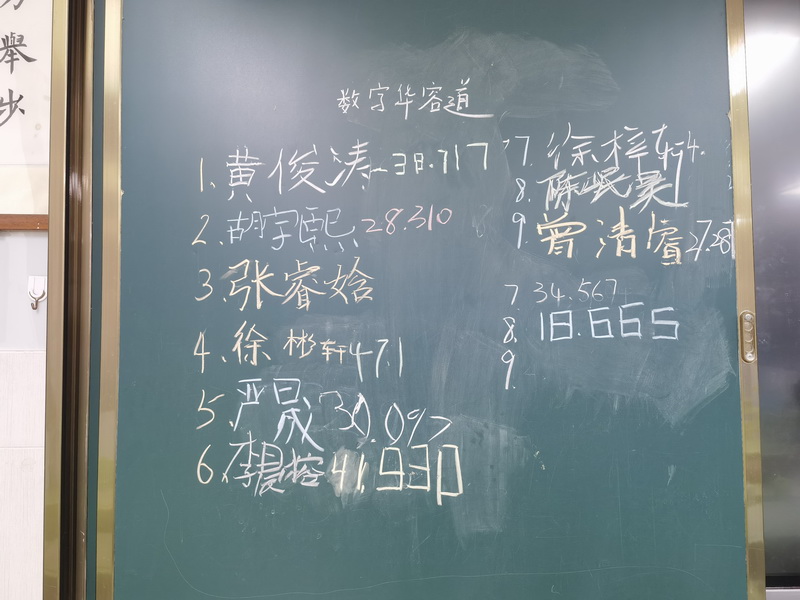 舉
步
数字华容道
1.黄俊涛 38.717
2.胡宇熙 28.310
3.张睿焓
4.徐彬轩 47.1
5.严晟 30.097
6.李晨榕 41.930
7.徐梓轩 4.
8.陈岷昊
9.曾清睿 27.28
7 34.567
8. 18.665
9.